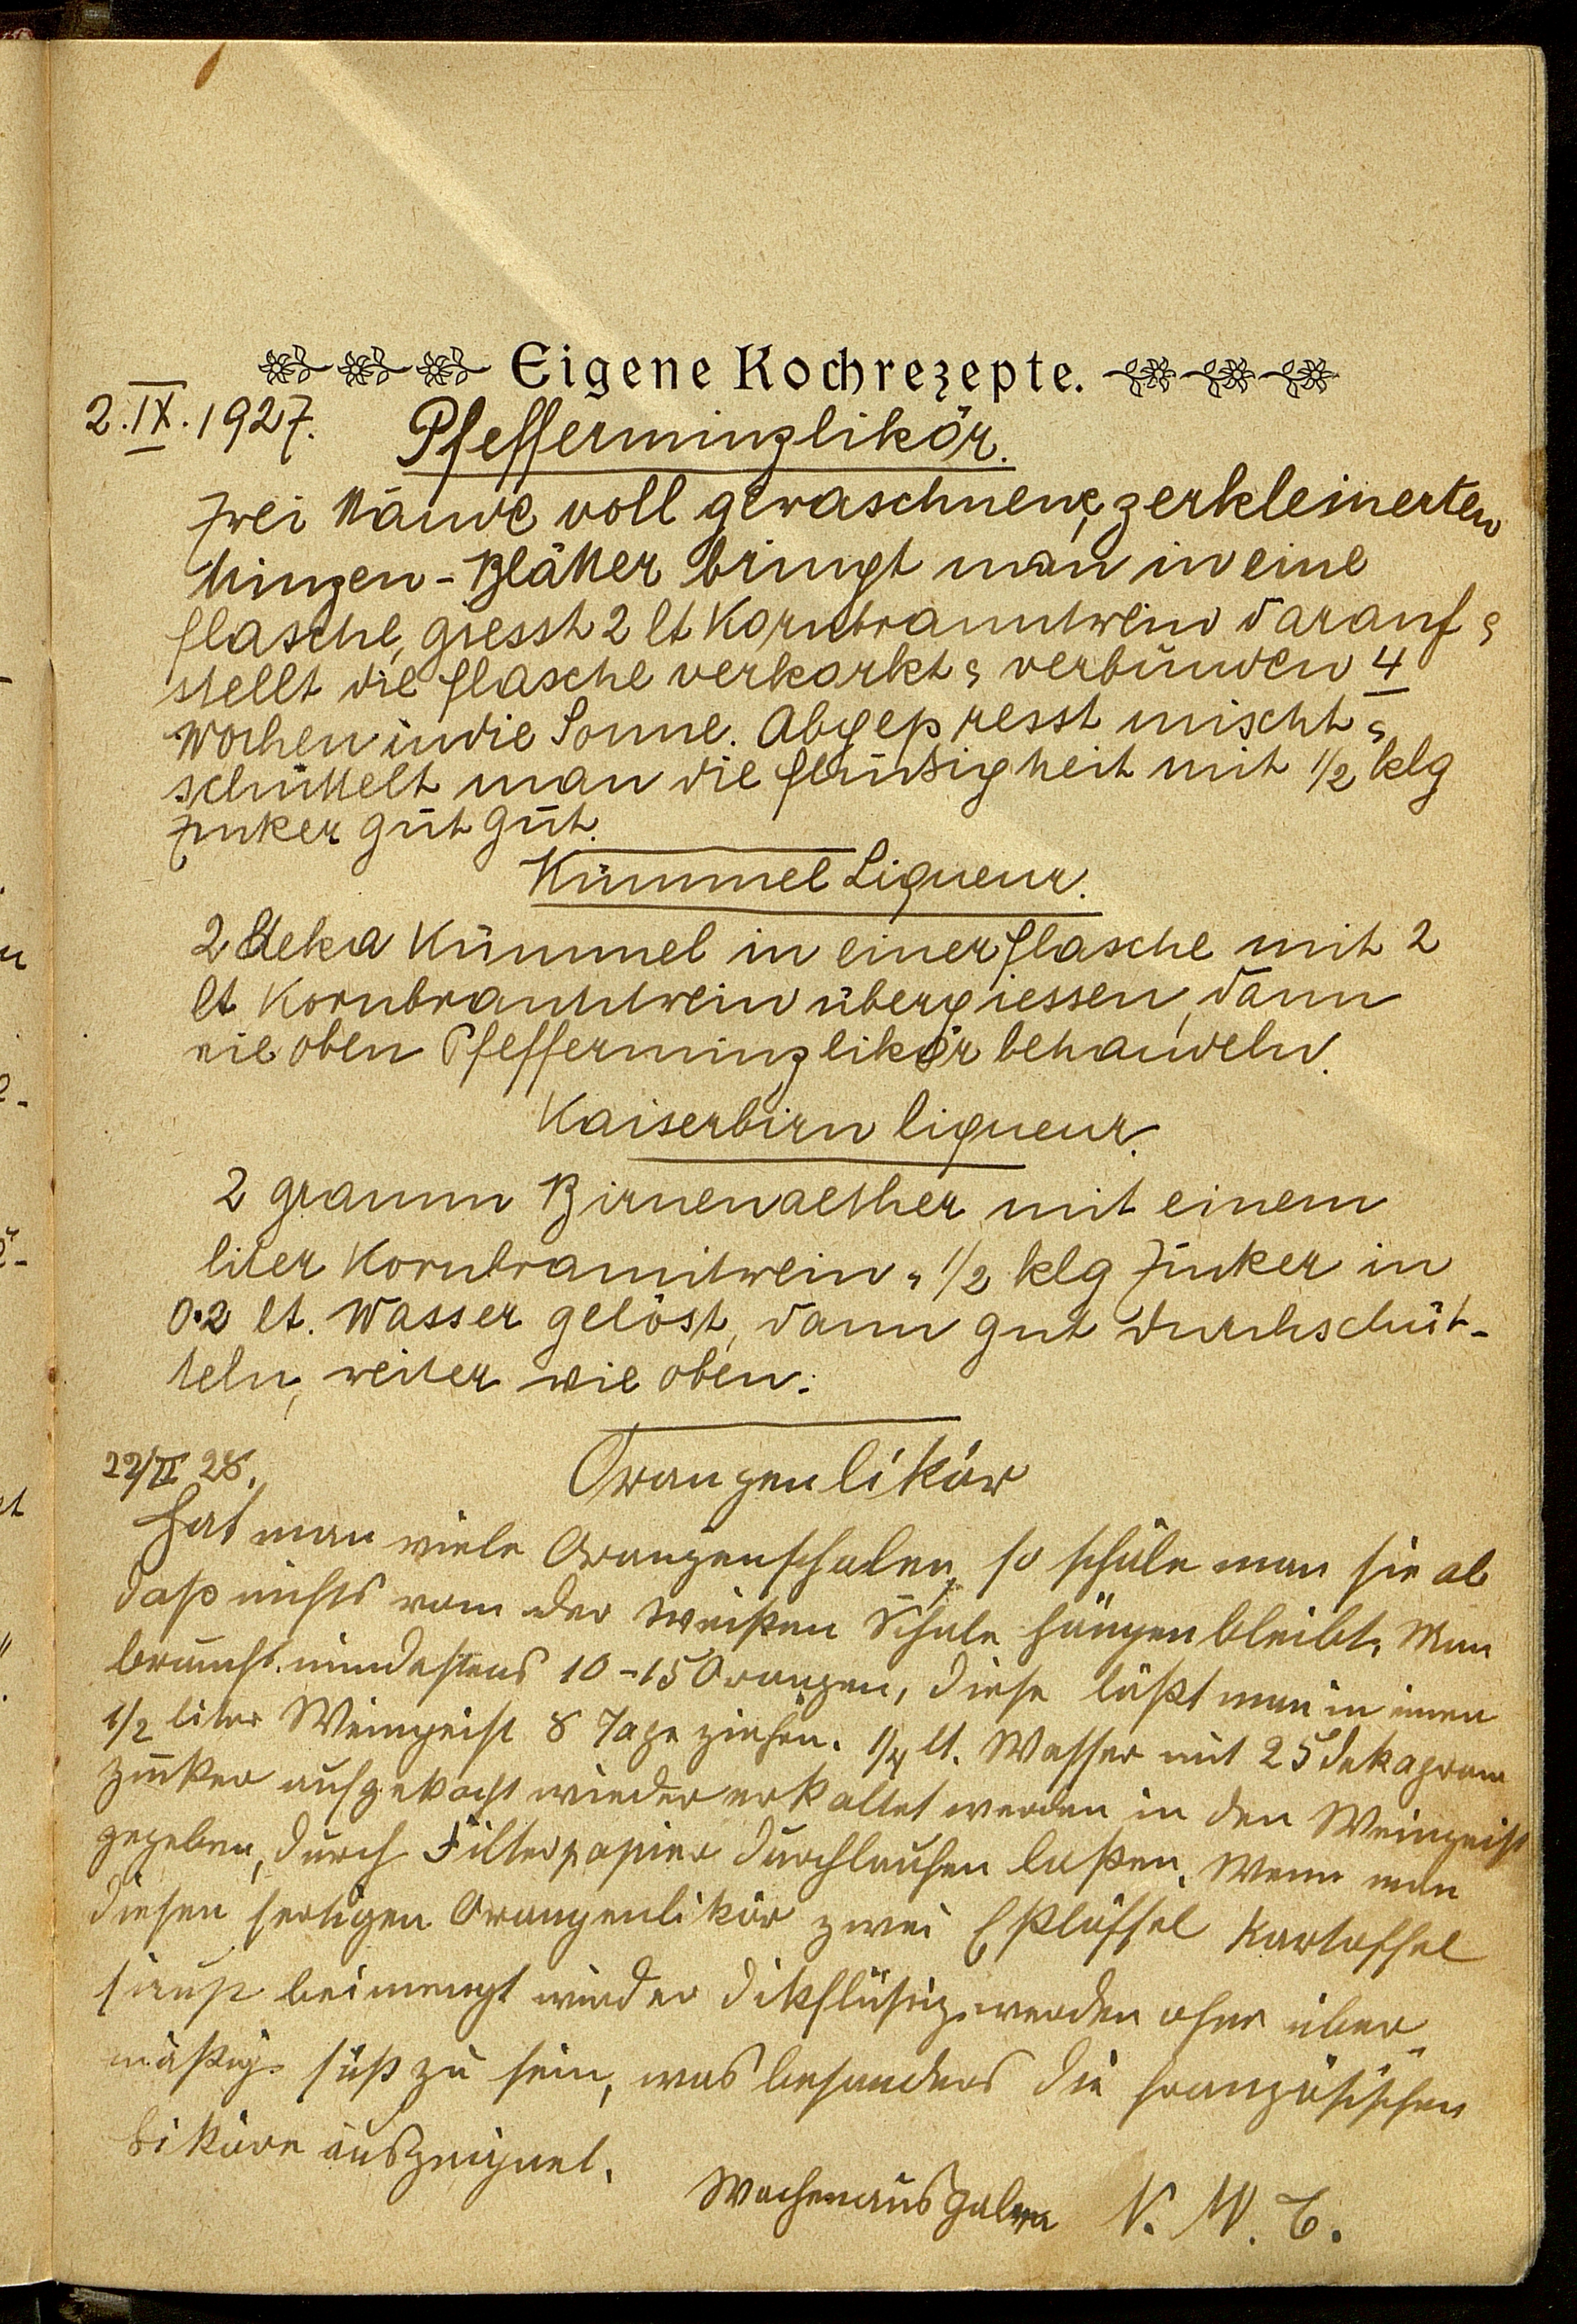 Eigene Kochrezepte.
2.IX.1927. Pfefferminzlikör.
Zwei Hände voll gewaschnene, zerkleinerten
Minzen-Blätter bringt man in eine
flasche, giesst 2 lt Kornbranntwein darauf &
stellt die flasche verkorkt & verbunden 4
Wochen in die Sonne. Abgepresst mischt &
schüttelt man die flüßigkeit mit 1/2 klg
Zucker gut gut.
Kümmel Liqueur.
2 deka Kümmel in einer flasche mit 2
lt Kornbranntwein übergiessen, dann
wie oben Pfefferminzlikör behandeln.
Kaiserbirn liqueur.
2 gramm Birnenaether mit einem
liter Kornbranntwein & 1/2 klg Zucker in
0.2 lt. Wasser gelöst, dann gut durchschüt-
teln, weiter wie oben.
22/II 28. Orangenlikör
Hat man viele Orangenschalen, so schäle man sie ab
daß nichts von der weißen Schale hängen bleibt. Man
braucht mindestens 10-15 Orangen, diese läßt man in einen
1/2 liter Weingeist 8 Tage ziehen. 1/4 lt. Wasser mit 25 dekagram
Zucker aufgekocht wieder erkaltet werden in den Weingeist
gegeben, durch Filterpapier durchlaufen laßen. Wenn man
diesen fertigen Orangenlikör zwei Eßlöffel Kartoffel
sirup beimengt wird er dikflüßig werden ohne über
mäßig süß zu sein, was besonders die französischen
Liköre auszeignet.
Wochenausgabe N. W. T.